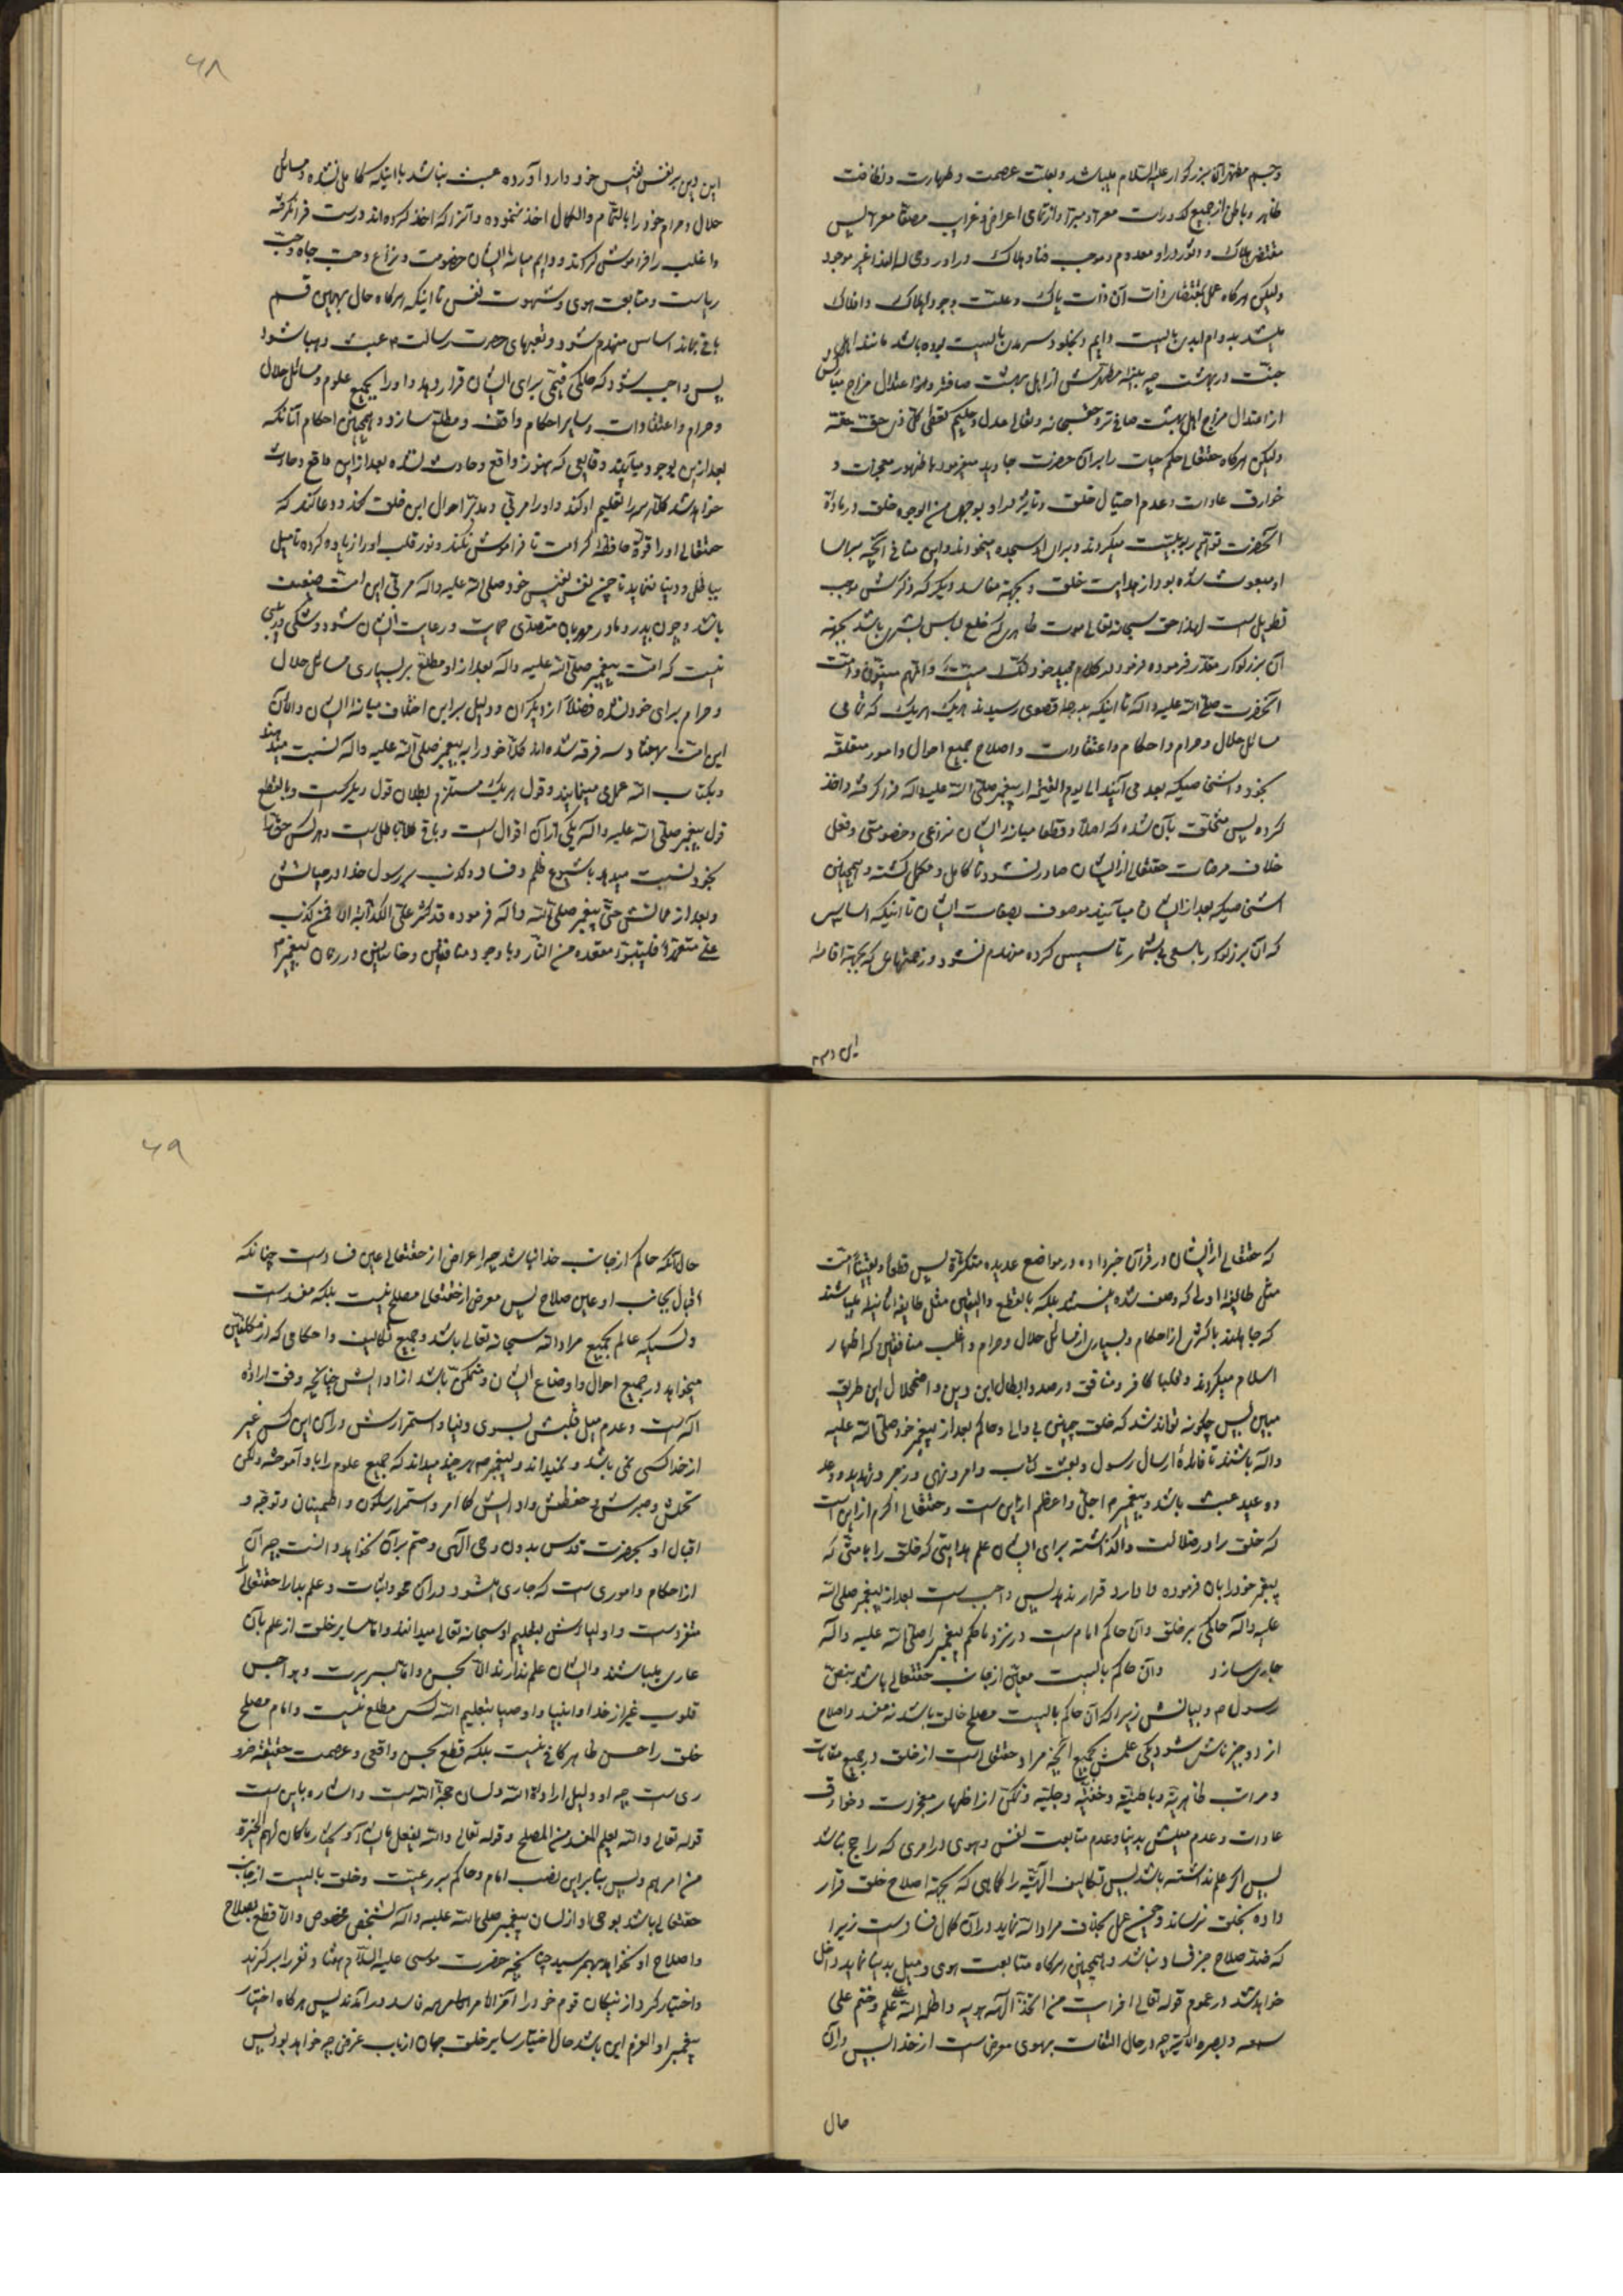 وجسم مطهر آن بزرگوار علیه السلام میباشد و بعلت عصمت و طهارت و نظافت
ظاهر و باطن از جمیع کدورات معرا و مبرا و از تمامی اعراض و غرایب مصفا معرا پس
مقتضی هلاک و در او معدوم و موجب فنا و هلاک در او روحی له الفدا غیر موجود
ولیکن هرگاه عمل بمقتضای ذات آن ذات پاک و علت وجود املاک و افلاک
میشد بدوام ابدی بایست دایم و بخلود سرمدی بایست بوده باشد مانند اهل
جنت در بهشت چه بنیه مطهرش از اهل بهشت صافتر و لهذا اعتدال مزاج مبارکش
از اعتدال مزاج اهل بهشت صافی تر و حقسبحانه و تعالی عدل و حکیم یعطی کل ذی حق حقه
ولیکن هرگاه حقتعالی حکم حیات را برای آن حضرت جاوید میفرمود با ظهور معجزات و
خوارق عادات و عدم احتیال خلق و تاثیر در او بوجهی من الوجوه خلق در باره
آنحضرت توهم ربوبیت میکردند و برای او سجده مینمودند و این منافی آنچه برای
او مبعوث شده بود از هدایت خلق و بجهة مفاسد دیگر که ذکرش موجب
تطویل است لهذا حق سبحانه تعالی موت ظاهری که خلع لباس بشری باشد بجهة
آن بزرگوار مقدر فرموده فرمود در کلام مجید خود انک میت و انهم میتون و امت
آنحضرت صلی الله علیه و آله تا اینکه بدرجه قصوی رسیدند هریک هریک که تمامی
مسائل حلال و حرام و احکام و اعتقادات و اصلاح جمیع احوال و امور متعلقه
بخود و اشخاصیکه بعد می آیند الی یوم القیمه از پیغمبر صلی الله علیه و آله فرا گرفته و اخذ
کرده پس متخلق بآن شده که اصلا و قطعا میانه ایشان نزاعی و خصومتی و فعل
خلاف مرضات حقتعالی از ایشان صادر نشود تا کامل و مکمل گشته و همچنین
اشخاصیکه بعد از ایشان میآیند موصوف بصفات ایشان تا اینکه اساس
که آن بزرگوار با سعی بیشمار تاسیس کرده منهدم نشود و زحمتهائی که بجهة اقامه
این دین
۶۸
این دین بر نفس نفیس خود وارد آورده عبث نباشد با اینکه کامل نشده و مسائل
حلال و حرام خود را بالتمام و الکمال اخذ ننموده و آنرا که اخذ کرده اند درست فرا نگرفته
و اغلب را فراموش کردند و دایم میانه ایشان خصومت و نزاع و حب جاه و حب
ریاست و متابعت هوی و شهوت نفس تا اینکه هرگاه حال بهمین قسم
باقی بماند اساس منهدم شود و تعبهای حضرت رسالت ص عبث و هبا شود
پس واجب شود که حاکمی قیمی برای ایشان قرار دهد و او را بجمیع علوم و مسائل حلال
و حرام و اعتقادات و سایر احکام واقف و مطلع سازد و همچنین احکام آنانکه
بعد ازین بوجود میآیند وقایعی که هنوز واقع و حادث نشده بعد از این واقع و حادث
خواهد شد کلا همه را تعلیم او کند و او را مربی و مدبر احوال این خلق کند و دعا کند که
حقتعالی او را قوة حافظه کرامت تا فراموش نکند و نور قلب او را زیاده کرده تا میل
بباطل و دنیا ننماید تا چون نفس نفیس خود صلی الله علیه و آله مربی این امت ضعیف
باشد و چون پدر و مادر مهربان متصدی حمایت و رعایت ایشان شود و شکی و ریبی
نیست که امت پیغمبر صلی الله علیه و آله بعد از او مطلع بر بسیاری مسائل حلال
و حرام برای خود نشده فضلا از دیگران و دلیل بر این اختلاف میانه ایشان و الان
این امت بهفتاد و سه فرقه شده اند کلا خود را به پیغمبر صلی الله علیه و آله نسبت میدهند
و بکتاب الله عمل مینمایند و قول هریک مستلزم بطلان قول دیگریست و بالقطع
قول پیغمبر صلی الله علیه و آله یکی از آن اقوال است و باقی کلا باطل است و هر کس حق را
بخود نسبت میدهد با شیوع ظلم و فساد و کذب بر رسول خدا در حیاتش
و بعد از مماتش حتی پیغمبر صلی الله و آله فرموده قد کثر علی الکذابة الا فمن کذب
علی متعمدا فلیتبوء مقعده من النار و با وجود منافقین و خائنین در زمان پیغمبر ص
که حقتعالی از ایشان در قرآن خبر داده در مواضع عدیده متکثرة پس قطعا و یقینا امت
مثل طایفه اولی که وصف شده نیستند بلکه بالقطع و الیقین مثل طایفه ثانیه میباشند
که جاهلند باکثری از احکام و بسیاری از مسائل حلال و حرام و اغلب منافقین که اظهار
اسلام میکردند و قلبا کافر و منافق در صدد ابطال این دین و اضمحلال این طریق
مبین پس چگونه تواند شد که خلق چنینی بی والی و حاکم بعد از پیغمبر خود صلی الله علیه
و آله باشند تا فایدۀ ارسال رسول و بعث کتاب و امر و نهی و زجر و تهدید و وعد
و وعید عبث باشد و پیغمبر ص اجل و اعظم از این است و حقتعالی اکرم از این است
که خلق را در ضلالت واگذاشته برای ایشان علم هدایتی که خلق را بامثی که
پیغمبر خود را بآن فرموده وا دارد قرار ندهد پس واجب است بعد از پیغمبر صلی الله
علیه و آله حاکمی بر خلق و آن حاکم امام است در نزد ما حکم پیغمبر را صلی الله علیه و آله
جاری سازد و آن حاکم بایست معین از جانب حقتعالی باشد بنص
رسول ص و بیانش زیرا که آن حاکم بایست مصلح خالق باشد نه مفسد و اصلاح
از دو چیز ناش شود یکی علمش بجمیع آنچه مراد حقتعالی است از خلق در جمیع مقامات
و مراتب ظاهریه و باطنیه و خفیه و جلیه و تمکن از اظهار معجزات و خوارق
عادات و عدم میلش بدنیا و عدم متابعت نفس و هوی در امری که راجح نباشد
پس اگر علم نداشته باشد پس تکالیف الهیه را کماهی که بجهة اصلاح خلق قرار
داده بخلق نرساند و چنین عمل بخلاف مراد الله نماید در آن کمال فساد است زیرا
که ضد صلاح جز فساد نباشد و همچنین هرگاه متابعت هوی و میل بدنیا نماید داخل
خواهد شد در عموم قوله تعالی افرایت من اتخذ الهه هویه و اضله الله علی علم و ختم علی
سمعه و بصره الآیه چه در حال التفات بهوی معرض است از خدا پس در آن
حال
۶۹
حال آنکه حاکم از جانب خدا نباشد چه اعراض از حقتعالی عین فساد است چنانکه
اقبال بجانب او عین صلاح پس معرض از حقتعالی مصلح نیست بلکه مفسد است
و کسیکه عالم بجمیع مراد الله سبحانه تعالی باشد و جمیع تکالیف و احکامی که از مکلفین
میخواهد در جمیع احوال و اوضاع ایشان و متمکن باشد از ادایش چنانچه وفق اراده
اله است و عدم میل قلبش بسوی دنیا و استمرارش در آن این کس غیر
از خدا کسی نمی باشد و نمیداند و پیغمبر ص هر چند میداند که جمیع علوم را باو آموخته ولکن
تحمل و صبرش و حفظش و ادایش کما امر و استمرار سکون و اطمینان و توجه و
اقبال او بحضرت قدس بدون وحی الهی و حتم بر آن نخواهد دانست چه آن
از احکام و اموری است که جاری میشود در آن محو و اثبات و علم بدا را حقتعالی
متفرد است و اولیاءش بتعلیم او سبحانه تعالی میدانند و اما سایر خلق از علم بآن
عاری میباشند و ایشان علم ندارند الا بحسن و اما بسریرت و هواجس
قلوب غیر از خدا و انبیا و اوصیا بتعلیم الله کسی مطلع نیست و امام مصلح
خلق را حسن ظاهر کافی نیست بلکه قطع بحسن واقعی و عصمت حقیقة ضرو
ری است چه او دلیل ارادة الله و لسان حجة الله است و اشاره باین است
قوله تعالی و الله یعلم المفسد من المصلح و قوله تعالی و الله یفعل ما یشاء و یختار ما کان لهم الخیرة
من امرهم و پس بنابراین نصب امام و حاکم بر رعیت و خلق بایست از جانب
حقتعالی باشد بوحی او از لسان پیغمبر صلی الله علیه و آله لشخص مخصوص و الا قطع بصلاح
و اصلاح او نخواهد بهم رسید چنانچه حضرت موسی علیه السلام هفتاد نفر را برگزید
و اختیار کرد از نیکان قوم خود را آخر الامر همه فاسد در آمدند پس هرگاه اختیار
پیغمبر اولوالعزم این باشد حال اختیار سایر خلق جهان از باب غرض چه خواهد بود پس